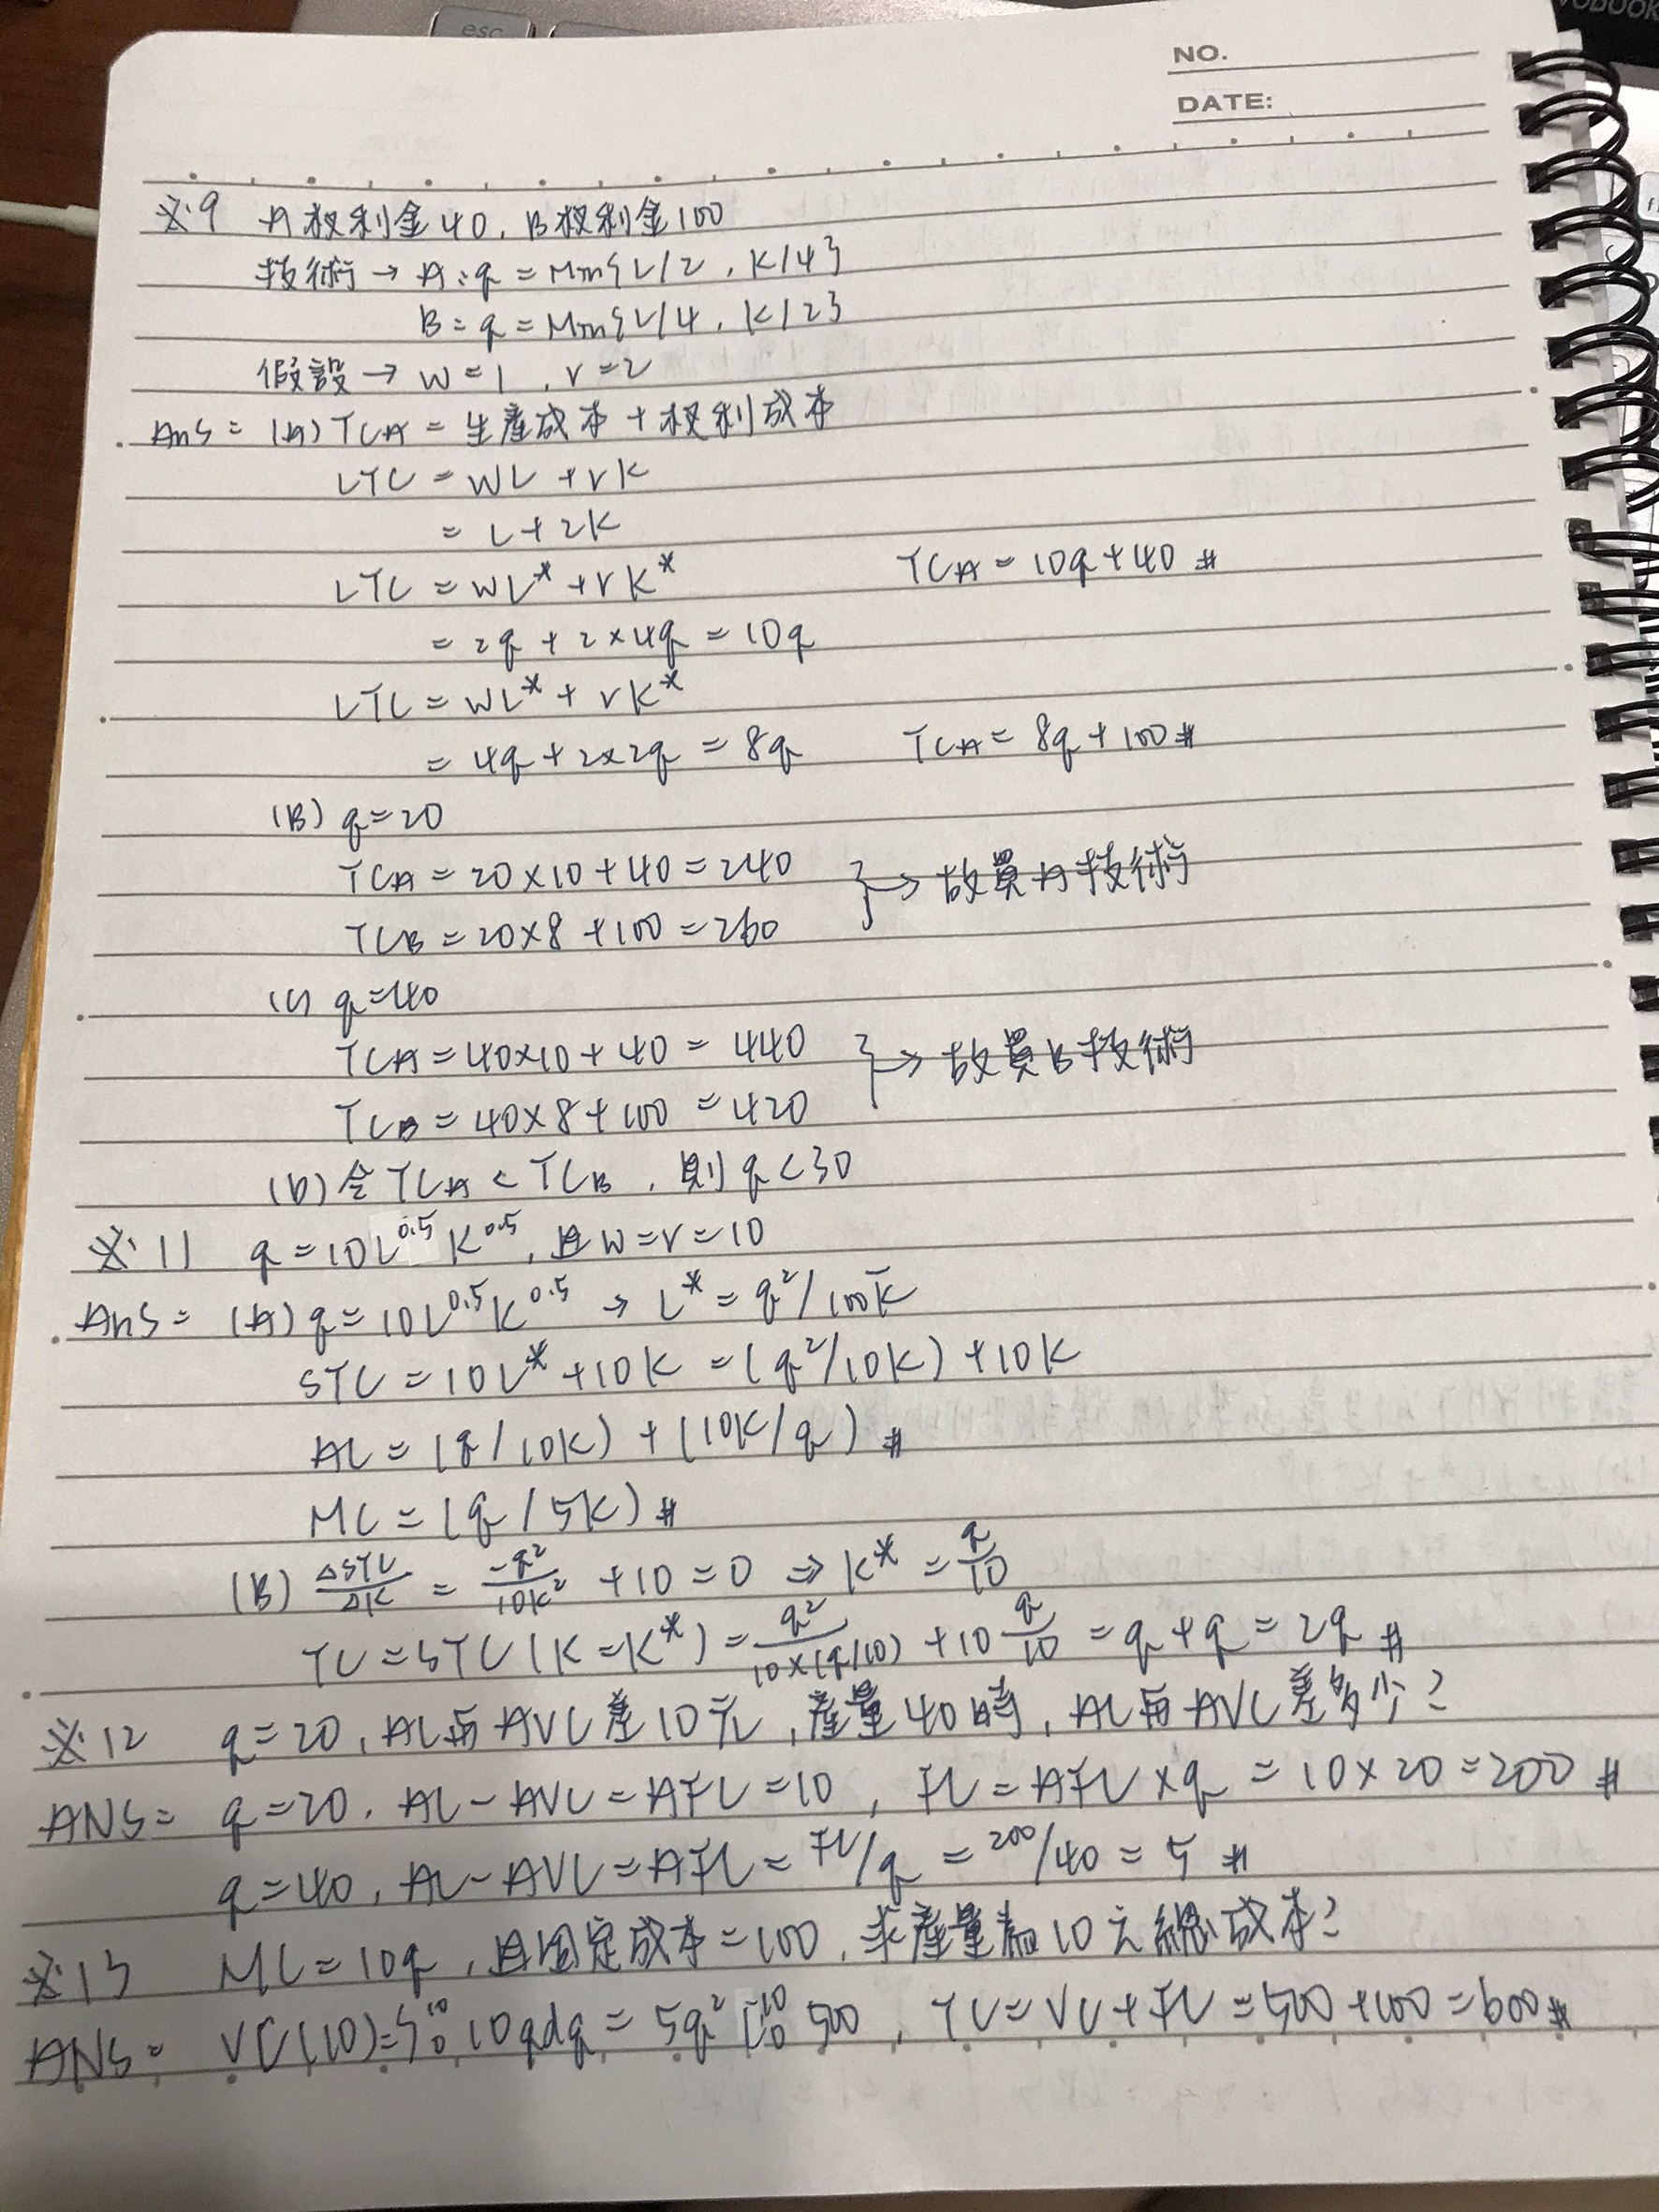 esc
NO.
DATE:
※9 A權利金40, B權利金100
技術→ A: q = Min{L/2, K/4}
B: q = Min{L/4, K/2}
假設→ w=1, r=2
Ans: (A) TCA = 生產成本 + 權利成本
LTC = wL + rK
= L + 2K
LTC = wL* + rK* TCA = 10q+40 #
= 2q + 2×4q = 10q
LTC = wL* + rK*
= 4q + 2×2q = 8q TCA = 8q+100 #
(B) q=20
TCA = 20×10+40 = 240 }→ 故買A技術
TCB = 20×8+100 = 260
(C) q=40
TCA = 40×10+40 = 440 }→ 故買B技術
TCB = 40×8+100 = 420
(D) 令TCA < TCB, 則q<30
※11 q = 10L^0.5 K^0.5, 且w=r=10
Ans: (A) q = 10L^0.5 K^0.5 → L* = q²/100K̄
STC = 10L* + 10K = (q²/10K) + 10K
AC = (q/10K) + (10K/q) #
MC = (q/5K) #
(B) ΔSTC/ΔK = -q²/10K² + 10 = 0 ⇒ K* = q/10
TC = STC(K=K*) = q²/10×(q/10) + 10 q/10 = q+q = 2q #
※12 q=20, AC與AVC差10元, 產量40時, AC與AVC差多少?
ANS: q=20, AC-AVC=AFC=10, FC=AFC×q = 10×20=200 #
q=40, AC-AVC=AFC= FC/q = 200/40 = 5 #
※13 MC=10q, 且固定成本=100, 求產量為10之總成本?
ANS: VC(10)=∫₀¹⁰ 10qdq = 5q² [₀¹⁰ 500, TC=VC+FC=500+100=600 #